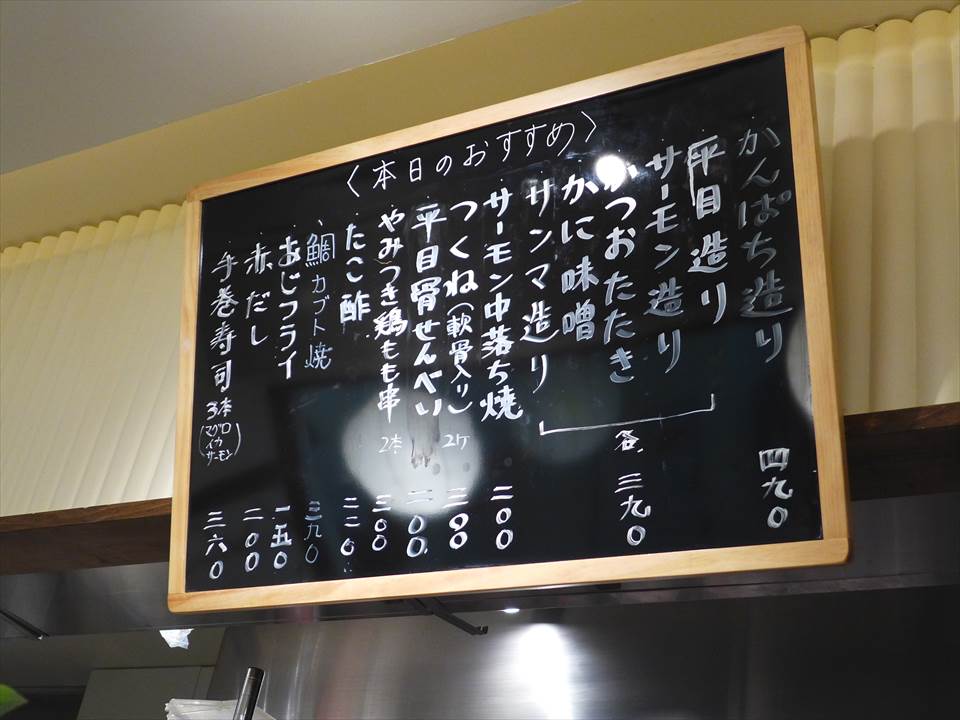 〈本日のおすすめ〉
かんぱち造り 四九〇
平目造り
サーモン造り
かつおたたき
かに味噌
サンマ造り
各三九〇
サーモン中落ち焼 二〇〇
つくね(軟骨入り) 2ケ 二〇〇
平目骨せんべい 二〇〇
やみつき鶏もも串 2本 三〇〇
たこ酢 二二〇
鯛カブト焼 三九〇
あじフライ 一五〇
赤だし 二〇〇
手巻寿司 3本 (マグロ イカ サーモン) 三六〇